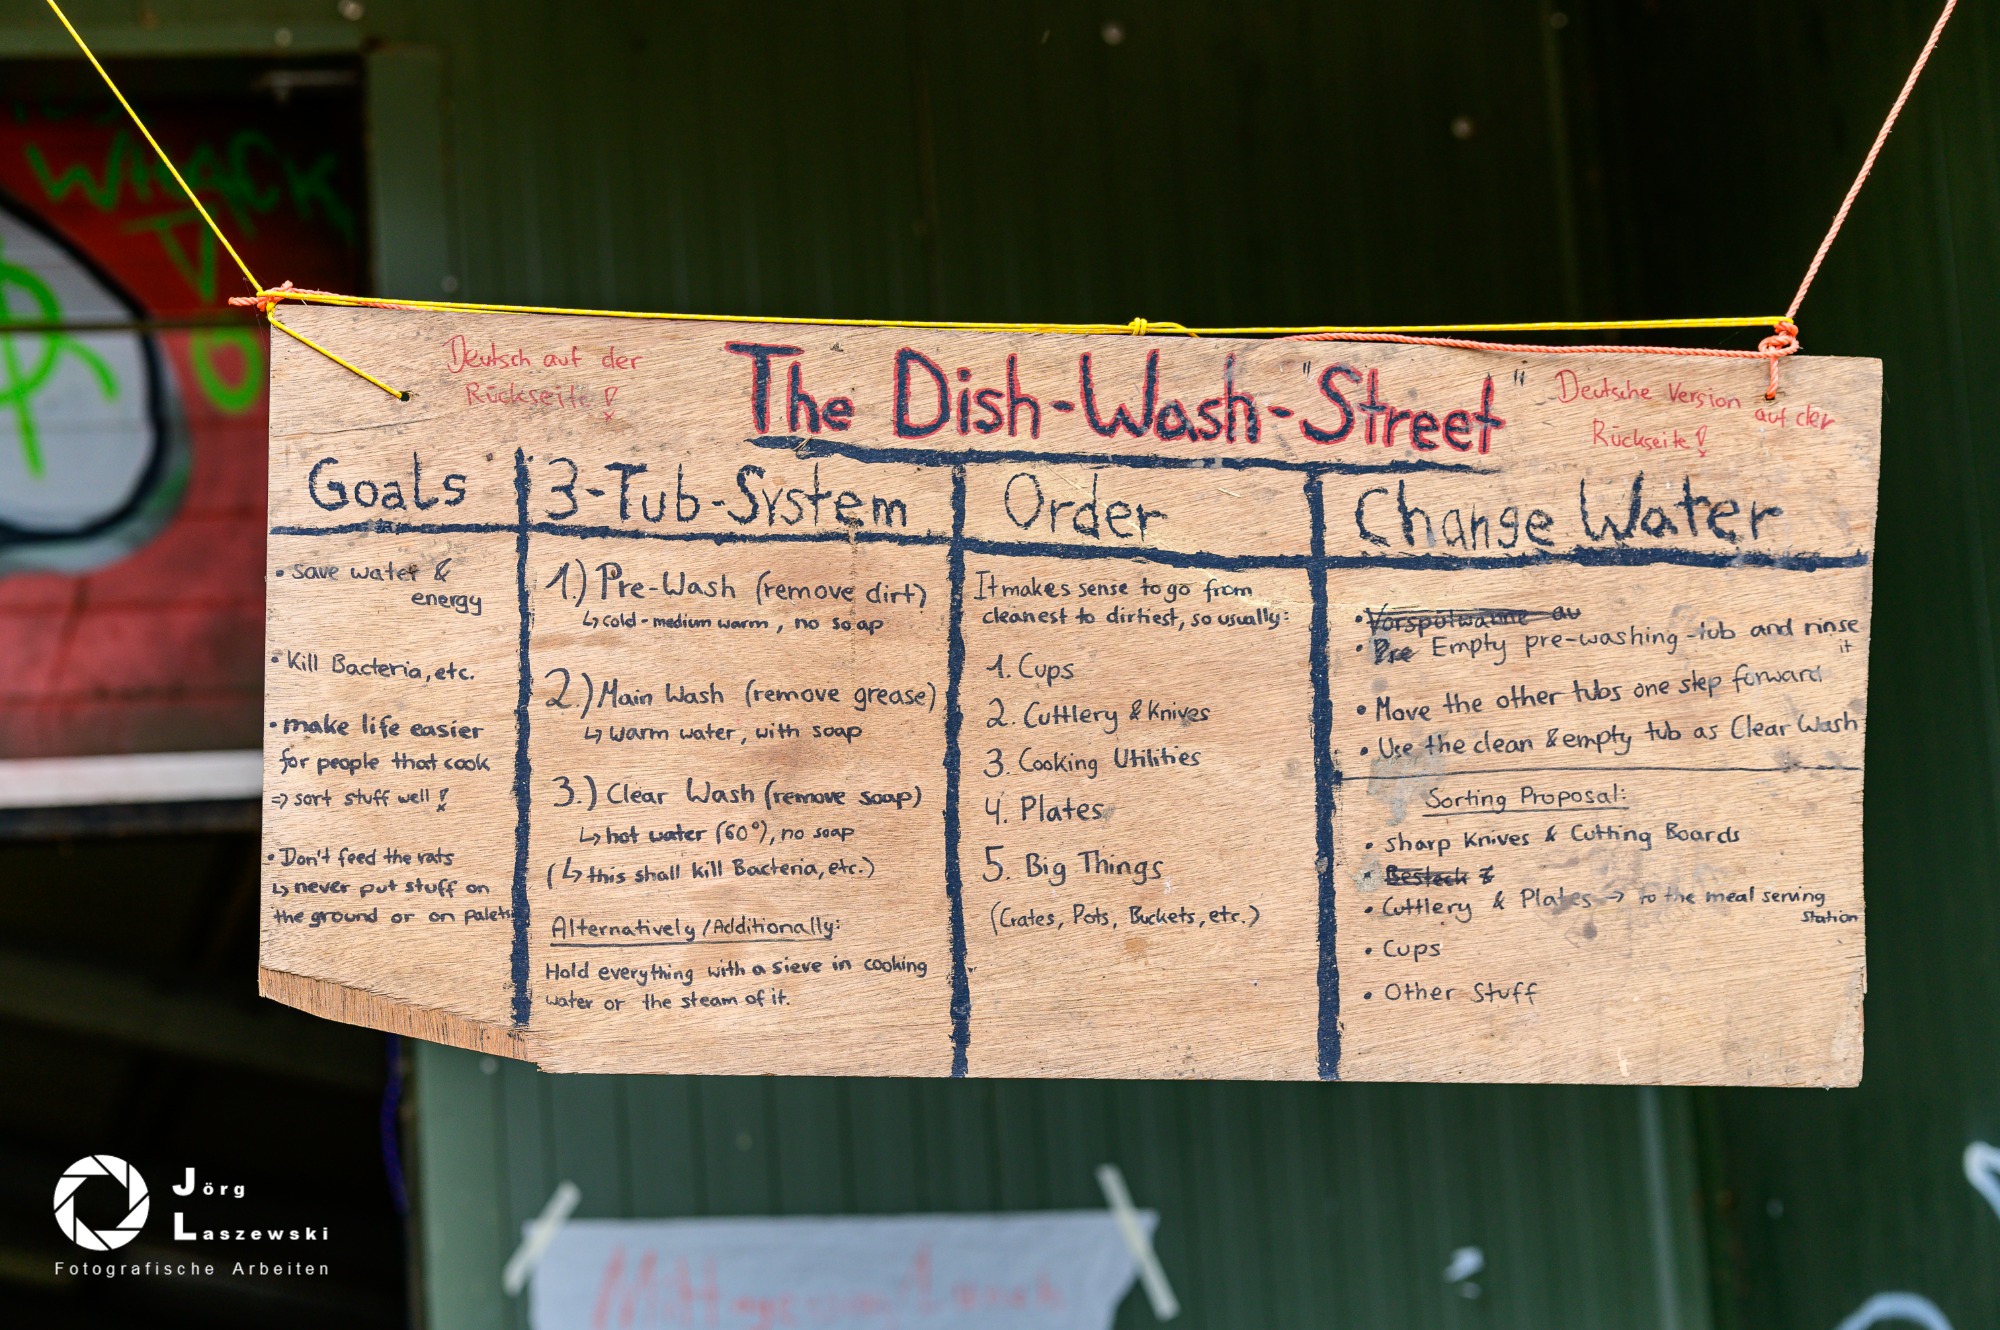 WHACK
Deutsch auf der
Rückseite!
The Dish-Wash-"Street"
Deutsche Version auf der
Rückseite!
Goals
• save water &
energy
• Kill Bacteria, etc.
• make life easier
for people that cook
=> sort stuff well!
• Don't feed the rats
↳ never put stuff on
the ground or on palets
3-Tub-System
1.) Pre-Wash (remove dirt)
↳ cold-medium warm, no soap
2.) Main Wash (remove grease)
↳ warm water, with soap
3.) Clear Wash (remove soap)
↳ hot water (60°), no soap
(↳ this shall kill Bacteria, etc.)
Alternatively/Additionally:
Hold everything with a sieve in cooking
water or the steam of it.
Order
It makes sense to go from
cleanest to dirtiest, so usually:
1. Cups
2. Cuttlery & Knives
3. Cooking Utilities
4. Plates
5. Big Things
(Crates, Pots, Buckets, etc.)
Change Water
• Vorspülwanne au
• Pre Empty pre-washing-tub and rinse
it
• Move the other tubs one step forward
• Use the clean & empty tub as Clear Wash
Sorting Proposal:
• sharp Knives & Cutting Boards
• Besteck &
• Cuttlery & Plates → to the meal serving
station
• Cups
• Other Stuff
Jörg
Laszewski
Fotografische Arbeiten